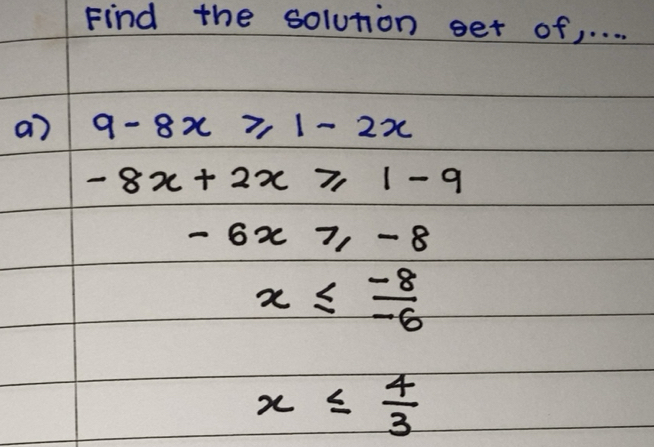 Find the solution set of,....
a) 9 - 8x ⩾ 1 - 2x
-8x + 2x ⩾ 1 - 9
- 6x ⩾ - 8
x ≤ -8/-6
x ≤ 4/3